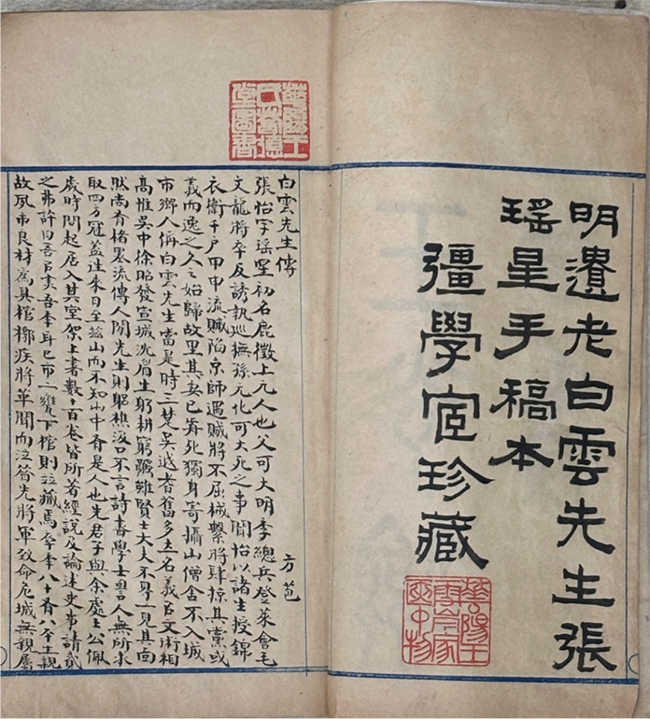 明遺老白雲先生張
瑤星手稿本
彊學宧珍藏
華陽王
白雲先生傳
方苞
張怡字瑤星初名鹿徵上元人也父可大明季總兵登萊會毛
文龍將卒反誘執巡撫孫元化可大死之事聞怡以諸生授錦
衣衛千戶甲申流賊陷京師遇賊將不屈械繫將肆掠其黨或
義而逸之久之始歸故里其妻已前死獨身寄攝山僧舍不入城
市鄉人稱白雲先生當是時三楚吳越耆舊多立名義以文術相
高惟吳中徐昭發宣城沈眉生躬耕窮鄉雖賢士大夫不得一見其面
然尚有楮墨流傳人間先生則躬樵汲口不言詩書學士詞人無所求
取四方冠蓋往來日至茲山而不知山中有是人也先君子與余處士公佩
歲時問起居入其室架上書數百卷皆所著經說及論述史事請貳
之弗許曰吾以盡吾年耳已市二甕下棺則並藏焉卒年八十有八平生親
故夙市良材為具棺槨疾將革聞而泣曰昔先將軍致命危城無親屬
華陽王
堂圖書